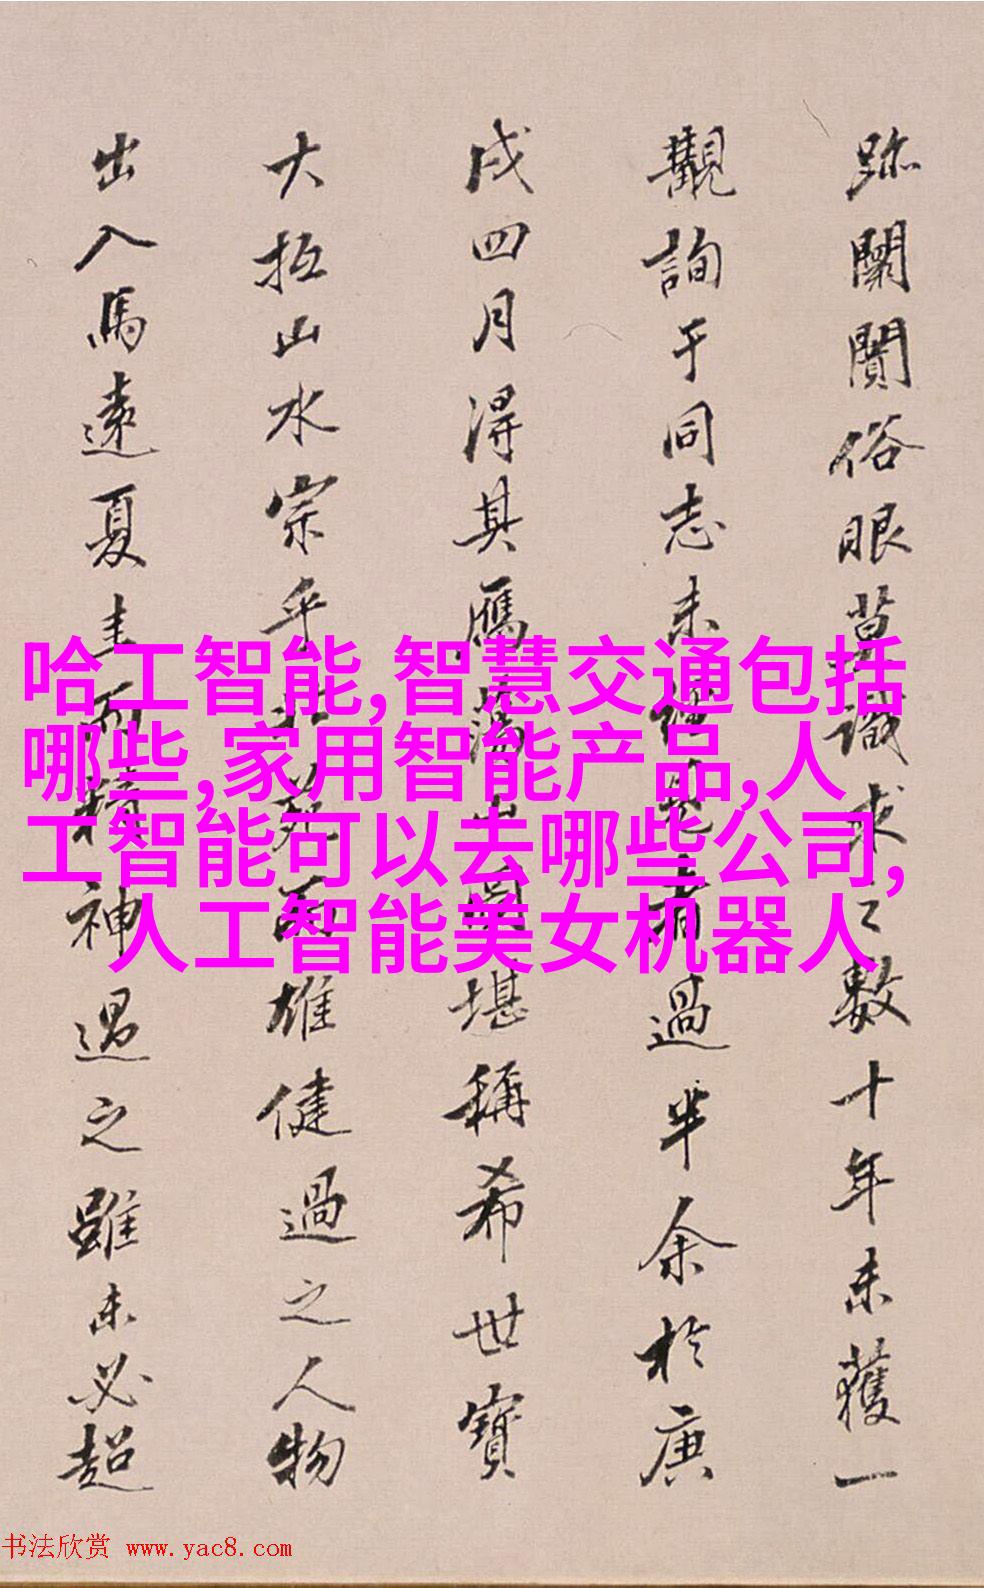 跡闤闠俗眼莫識求之數十年未獲一
觀詢于同志未經見者過半余於庚
戌四月得其雁蕩山圖堪稱希世寶
大抵山水宗乎北苑而雄健過之人物
出入馬遠夏圭而精神過之雖未必超
哈工智能,智慧交通包括
哪些,家用智能产品,人
工智能可以去哪些公司,
人工智能美女机器人
书法欣赏 www.yac8.com